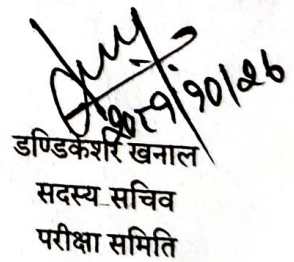 २०८१/१०/२७
डण्डिकेशरि खनाल
सदस्य सचिव
परीक्षा समिति